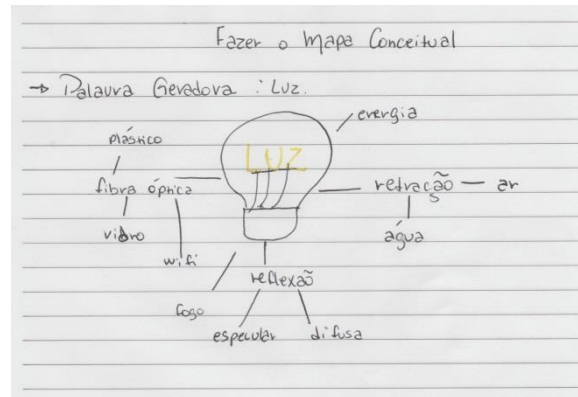 Fazer o Mapa Conceitual
→ Palavra Geradora : Luz.
energia
plástico
LUZ
fibra óptica
refração — ar
vidro
água
wifi
reflexão
fogo
especular
difusa